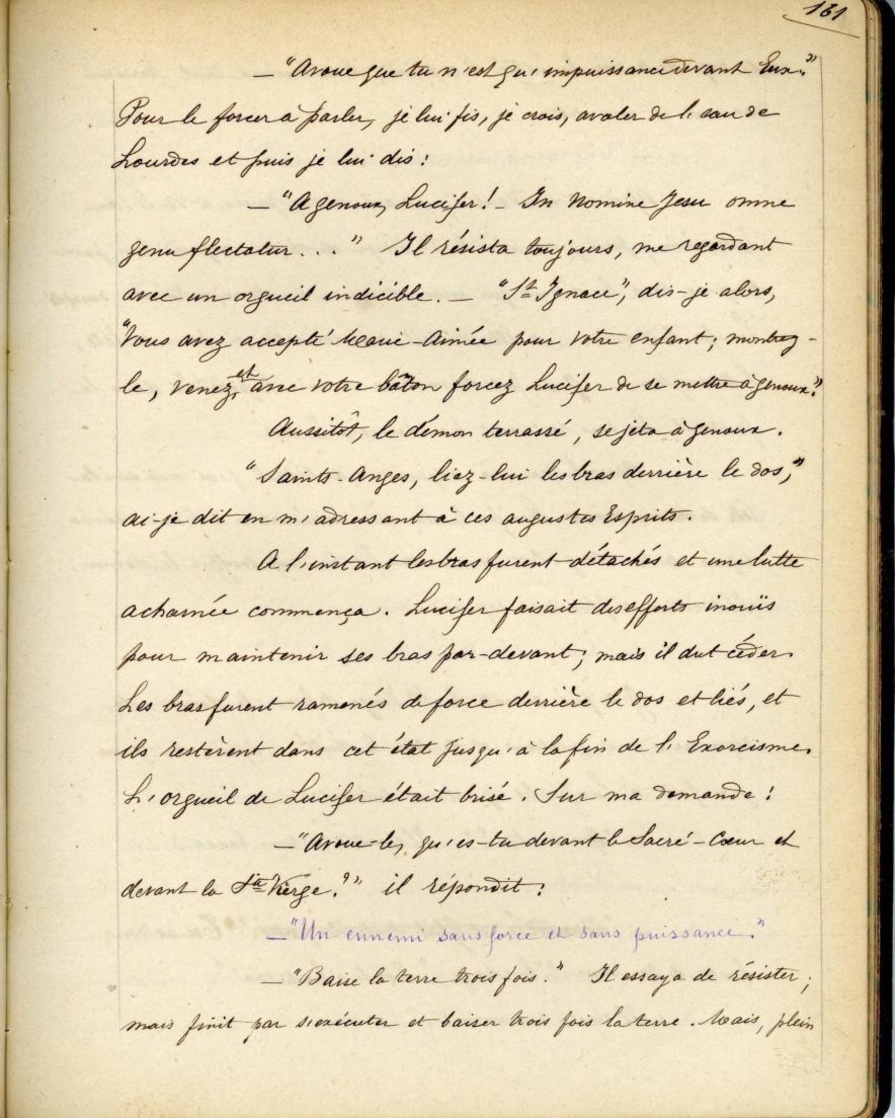 161
— "Avoue que tu n'est qu'impuissance devant Eux."
Pour le forcer à parler, je lui fis, je crois, avaler de l'eau de
Lourdes et puis je lui dis :
— "A genoux, Lucifer ! - In Nomine Jesu omne
genu flectatur . . ." Il résista toujours, me regardant
avec un orgueil indicible. — "St Ignace", dis-je alors,
"Vous avez accepté Marie-Aimée pour votre enfant ; montrez-
le, venez, et avec votre bâton forcez Lucifer de se mettre à genoux."
Aussitôt, le démon terrassé, se jeta à genoux.
"Saints-Anges, liez-lui les bras derrière le dos,"
ai-je dit en m'adressant à ces augustes Esprits.
A l'instant les bras furent détachés et une lutte
acharnée commença. Lucifer faisait des efforts inouïs
pour maintenir ses bras par-devant ; mais il dut céder.
Les bras furent ramenés de force derrière le dos et liés, et
ils restèrent dans cet état jusqu'à la fin de l'Exorcisme.
L'orgueil de Lucifer était brisé. Sur ma demande :
— "Avoue-le, qu'es-tu devant le Sacré-Cœur et
devant la Ste Vierge ?" il répondit :
— "Un ennemi sans force et sans puissance."
— "Baise la terre trois fois." Il essaya de résister ;
mais finit par s'exécuter et baiser trois fois la terre. Mais, plein